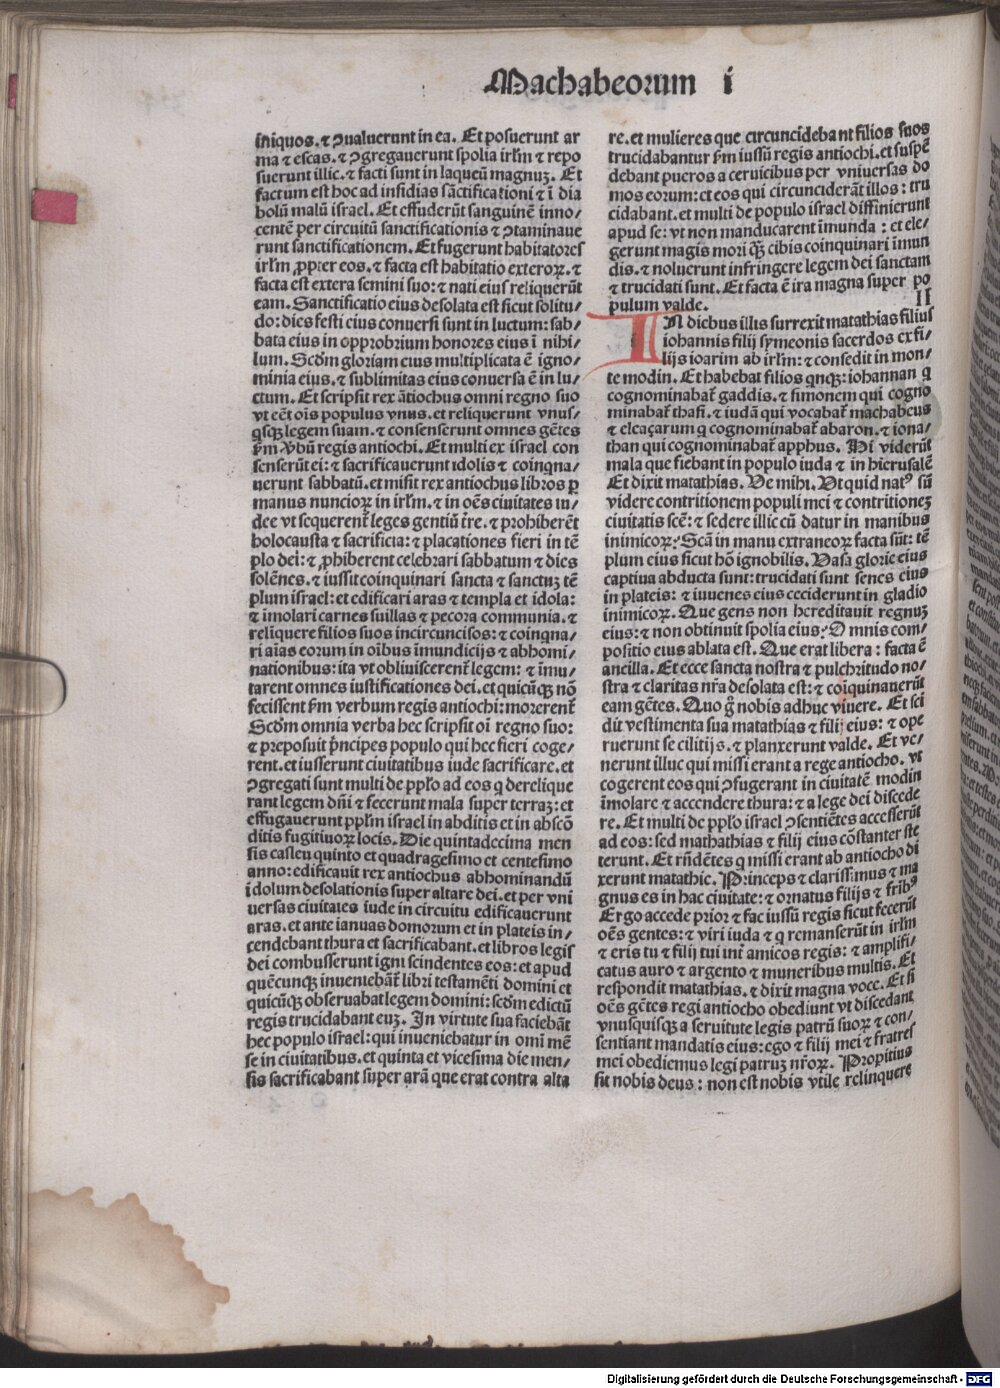 Machabeorum i
iniquos. ⁊ ꝯualuerunt in ea. Et posuerunt ar
ma ⁊ escas. ⁊ ꝯgregauerunt spolia irl̄m ⁊ repo
suerunt illic. ⁊ facti sunt in laqueū magnuꝫ. Et
factum est hoc ad insidias sāctificationi ⁊ ī dia
bolū malū israel. Et effuderūt sanguinē inno/
centē per circuitū sanctificationis ⁊ ꝯtaminaue
runt sanctificationem. Et fugerunt habitatores
irl̄m ꝓpter eos. ⁊ facta est habitatio exteroꝝ. ⁊
facta est extera semini suo: ⁊ nati eius reliquerūt
eam. Sanctificatio eius desolata est sicut solitu/
do: dies festi eius conuersi sunt in luctum: sab/
bata eius in opprobrium honores eius ī nihi/
lum. Scd̄m gloriam eius multiplicata ē igno/
minia eius. ⁊ sublimitas eius conuersa ē in lu/
ctum. Et scripsit rex ātiochus omni regno suo
vt eēt oīs populus vnus. et reliquerunt vnus/
qsqꝫ legem suam. ⁊ consenserunt omnes gētes
s̄m v̄bū regis antiochi. Et multi ex israel con
senserūt ei: ⁊ sacrificauerunt idolis ⁊ coinqna/
uerunt sabbatū. et misit rex antiochus libros ꝑ
manus nuncioꝝ in irl̄m. ⁊ in oēs ciuitates iu/
dee vt sequerent̄ leges gentiū t̄re. ⁊ prohiberēt
holocausta ⁊ sacrificia: ⁊ placationes fieri in tē
plo dei: ⁊ ꝓhiberent celebrari sabbatum ⁊ dies
solēnes. ⁊ iussit coinquinari sancta ⁊ sanctuꝫ tē
plum israel: et edificari aras ⁊ templa et idola:
⁊ imolari carnes suillas ⁊ pecora communia. ⁊
relinquere filios suos incircuncisos: ⁊ coinqna/
ri aīas eorum in oībus īmundicijs ⁊ abhomi/
nationibus: ita vt obliuiscerent̄ legem: ⁊ īmu/
tarent omnes iustificationes dei. et quicūqꝫ nō
fecissent s̄m verbum regis antiochi: morerent̄
Scd̄m omnia verba hec scripsit oī regno suo:
⁊ preposuit p̄ncipes populo qui hec fieri coge/
rent. et iusserunt ciuitatibus iude sacrificare. et
ꝯgregati sunt multi de pplo ad eos q derelique
rant legem dn̄i ⁊ fecerunt mala super terraꝫ: et
effugauerunt ppl̄m israel in abditis et in abscō
ditis fugitiuoꝝ locis. Die quintadecima men
sis casleu quinto et quadragesimo et centesimo
anno: edificauit rex antiochus abhominandū
idolum desolationis super altare dei. et per vni
uersas ciuitates iude in circuitu edificauerunt
aras. et ante ianuas domorum et in plateis in/
cendebant thura et sacrificabant. et libros legis
dei combusserunt igni scindentes eos: et apud
quēcunqꝫ inueniebāt̄ libri testamēti domini et
quicūqꝫ obseruabat legem domini: scd̄m edictū
regis trucidabant euꝫ. In virtute sua faciebāt
hec populo israel: qui inueniebatur in omī mē
se in ciuitatibus. et quinta et vicesima die men/
sis sacrificabant super arā que erat contra alta
re. et mulieres que circuncidebant filios suos
trucidabantur s̄m iussū regis antiochi. et suspē
debant pueros a ceruicibus per vniuersas do
mos eorum: et eos qui circunciderāt illos: tru
cidabant. et multi de populo israel diffinierunt
apud se: vt non manducarent īmunda: et ele/
gerunt magis mori qꝫ cibis coinquinari īmun
dis. ⁊ noluerunt infringere legem dei sanctam
⁊ trucidati sunt. Et facta ē ira magna super po
pulum valde. II
IN diebus illis surrexit matathias filius
iohannis filij symeonis sacerdos ex fi/
lijs ioarim ab irl̄m: ⁊ consedit in mon/
te modin. Et habebat filios qnqꝫ: iohannan q
cognominabat̄ gaddis. ⁊ simonem qui cogno
minabat̄ thasi. ⁊ iudā qui vocabat̄ machabeus
⁊ eleaçarum q cognominabat̄ abaron. ⁊ iona/
than qui cognominabat̄ apphus. Hi viderūt
mala que fiebant in populo iuda ⁊ in hierusalē
Et dixit matathias. Ve mihi. Vt quid natꝰ sū
videre contritionem populi mei ⁊ contritioneꝫ
ciuitatis scē: ⁊ sedere illic cū datur in manibus
inimicoꝝ? Scā in manu extraneoꝝ facta sūt: tē
plum eius sicut hō ignobilis. Vasa glorie eius
captiua abducta sunt: trucidati sunt senes eius
in plateis: ⁊ iuuenes eius ceciderunt in gladio
inimicoꝝ. Que gens non hereditauit regnuꝫ
eius: ⁊ non obtinuit spolia eius? Omnis com/
positio eius ablata est. Que erat libera: facta ē
ancilla. Et ecce sancta nostra ⁊ pulchritudo no/
stra ⁊ claritas nr̄a desolata est: ⁊ coīquinauerūt
eam gētes. Quo g̊ nobis adhuc viuere. Et sci
dit vestimenta sua matathias ⁊ filij eius: ⁊ ope
ruerunt se cilitijs. ⁊ planxerunt valde. Et ve/
nerunt illuc qui missi erant a rege antiocho. vt
cogerent eos qui ꝯfugerant in ciuitatē modin
īmolare ⁊ accendere thura: ⁊ a lege dei discede
re. Et multi de pplo israel ꝯsentiētes accesserūt
ad eos: sed mathathias ⁊ filij eius cōstanter ste
terunt. Et rn̄dētes q missi erant ab antiocho di
xerunt matathie. Princeps ⁊ clarissimus ⁊ ma
gnus es in hac ciuitate: ⁊ ornatus filijs ⁊ fribꝰ
Ergo accede prior ⁊ fac iussū regis sicut fecerūt
oēs gentes: ⁊ viri iuda ⁊ q remanserūt in irl̄m
⁊ eris tu ⁊ filij tui int̄ amicos regis: ⁊ amplifi/
catus auro ⁊ argento ⁊ muneribus multis. Et
respondit matathias. ⁊ dixit magna voce. Et si
oēs gētes regi antiocho obediunt vt discedant
vnusquisqꝫ a seruitute legis patrū suoꝝ ⁊ con/
sentiant mandatis eius: ego ⁊ filij mei ⁊ fratres
mei obediemus legi patruꝫ nr̄oꝝ. Propitius
sit nobis deus: non est nobis vtile relinquere
Digitalisierung gefördert durch die Deutsche Forschungsgemeinschaft - DFG